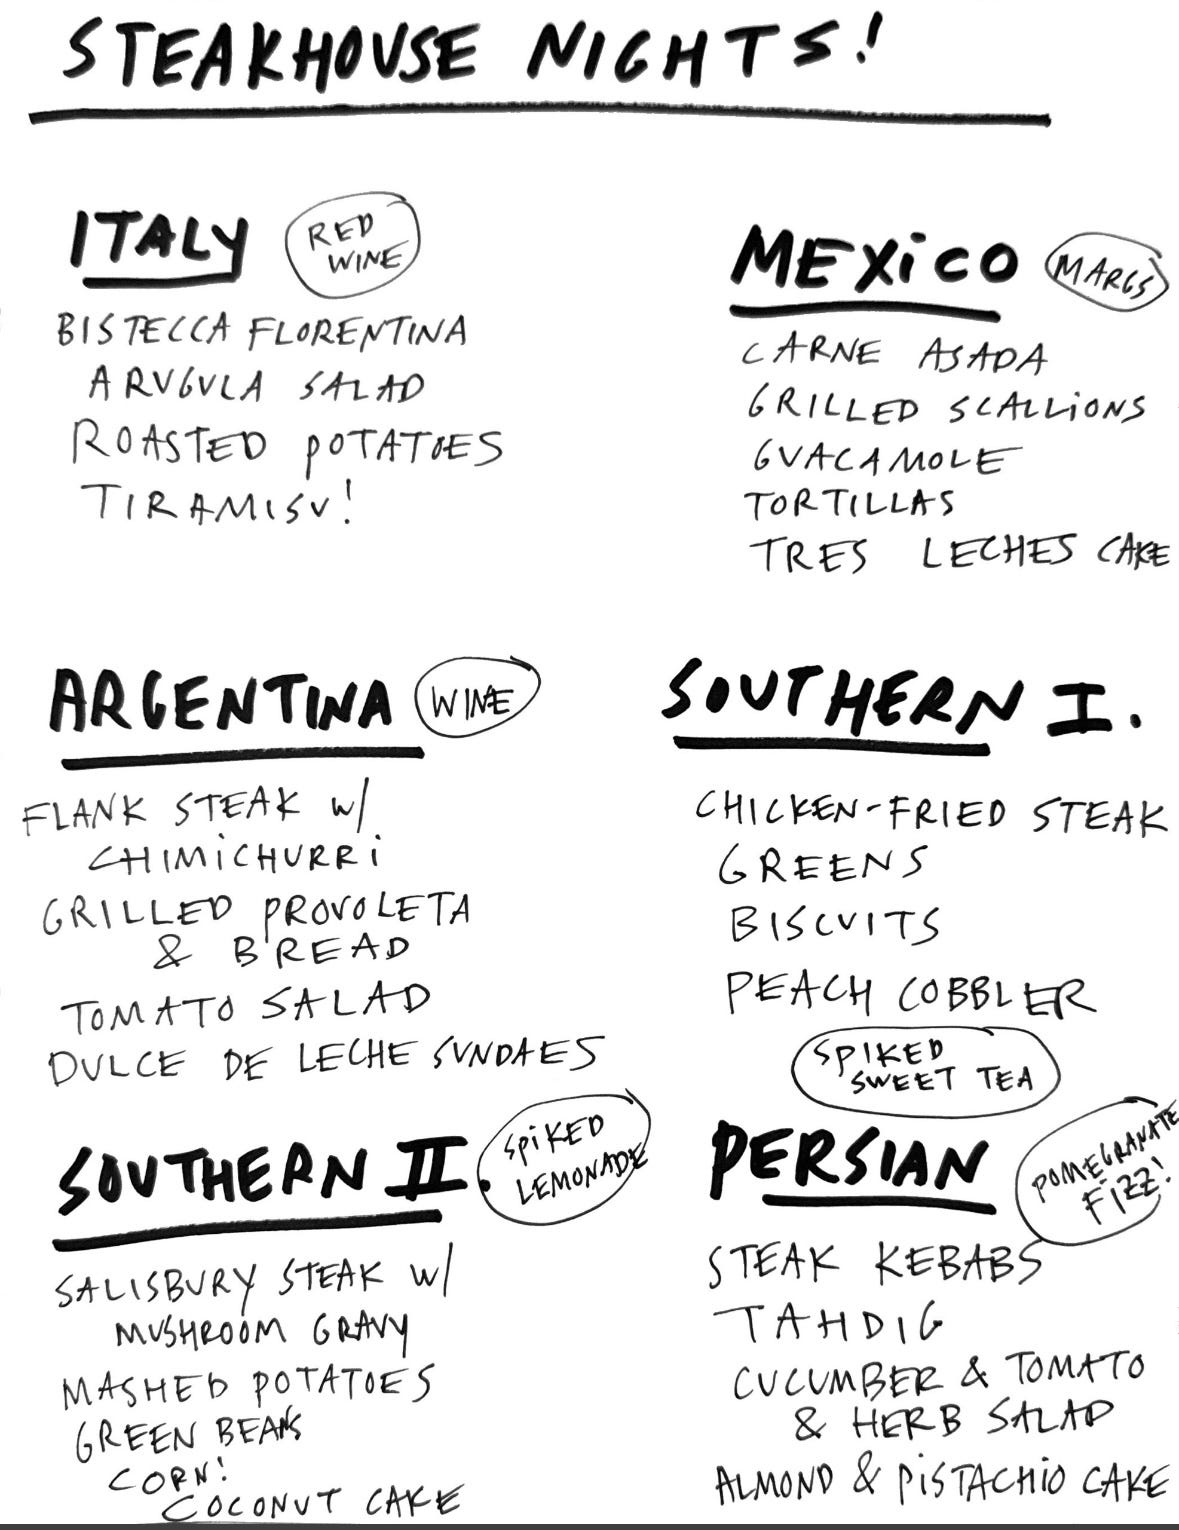 STEAKHOUSE NIGHTS!
ITALY
RED
WINE
BISTECCA FLORENTINA
ARUGULA SALAD
ROASTED POTATOES
TIRAMISU!
MEXiCO
MARGS
CARNE ASADA
GRILLED SCALLiONS
GUACAMOLE
TORTILLAS
TRES LECHES CAKE
ARGENTINA
WINE
FLANK STEAK w/
CHIMiCHURRi
GRILLED PROVOLETA
& BREAD
TOMATO SALAD
DULCE DE LECHE SUNDAES
SOUTHERN I.
CHICKEN-FRIED STEAK
GREENS
BISCUITS
PEACH COBBLER
SPIKED
SWEET TEA
SOUTHERN II.
SPiKED
LEMONADE
SALISBURY STEAK w/
MUSHROOM GRAVY
MASHED POTATOES
GREEN BEANS
CORN!
COCONUT CAKE
PERSIAN
POMEGRANATE
FIZZ!
STEAK KEBABS
TAHDIG
CUCUMBER & TOMATO
& HERB SALAD
ALMOND & PiSTACHiO CAKE